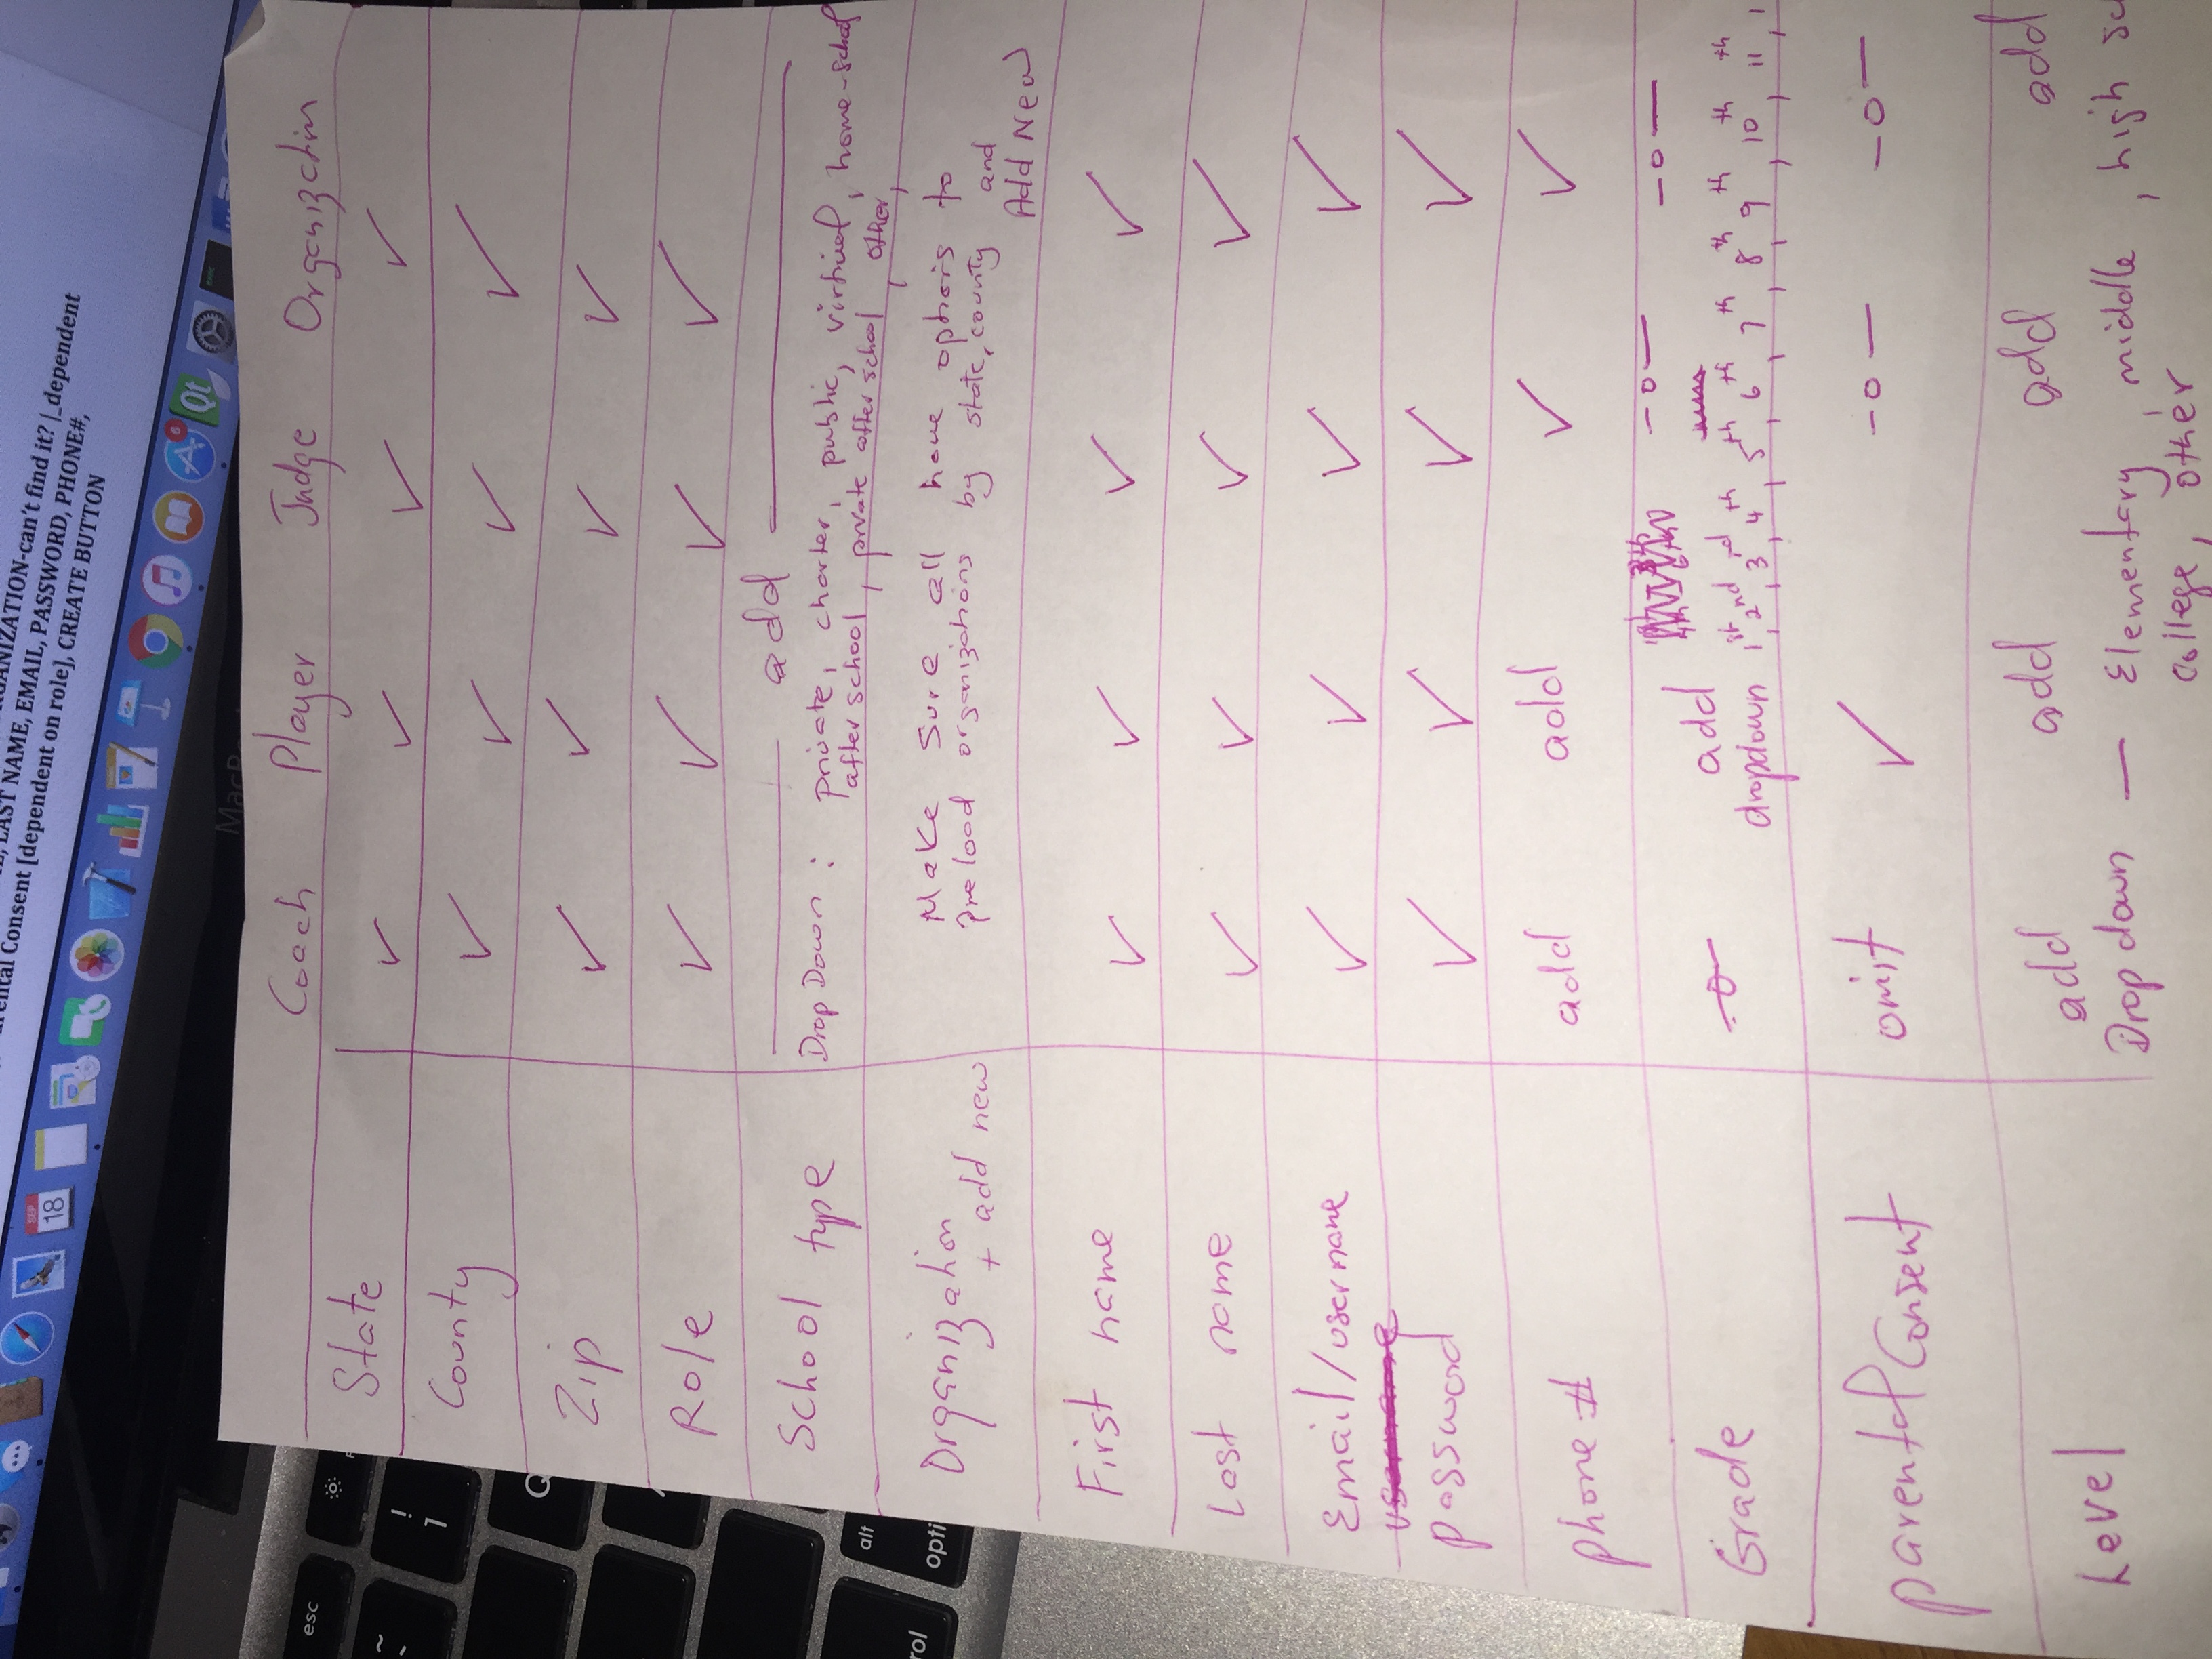 ORGANIZATION-can't find it? |_dependent
LAST NAME, EMAIL, PASSWORD, PHONE#,
Consent [dependent on role], CREATE BUTTON
MacB
SEP
18
Qt
esc
alt
opti
Q
!
1
~
rol
Coach Player Judge Organization
State ✓ ✓ ✓ ✓
County ✓ ✓ ✓ ✓
Zip ✓ ✓ ✓ ✓
Role ✓ ✓ ✓ ✓
School type —— add ——
Drop Down : private, charter, public, virtual, home-school
after school, private after school, other,
Organization
+ add new
Make sure all have options to
preload organizations by state, county and
Add New
First name ✓ ✓ ✓ ✓
Last name ✓ ✓ ✓ ✓
Email/username ✓ ✓ ✓ ✓
password ✓ ✓ ✓ ✓
phone # add add ✓ ✓
Grade -0- add -0- -0-
dropdown 1st, 2nd, 3rd, 4th, 5th, 6th, 7th, 8th, 9th, 10th, 11th,
parental Consent omit ✓ -0- -0-
Level add add add add
Drop down — Elementary, middle, high
college, other